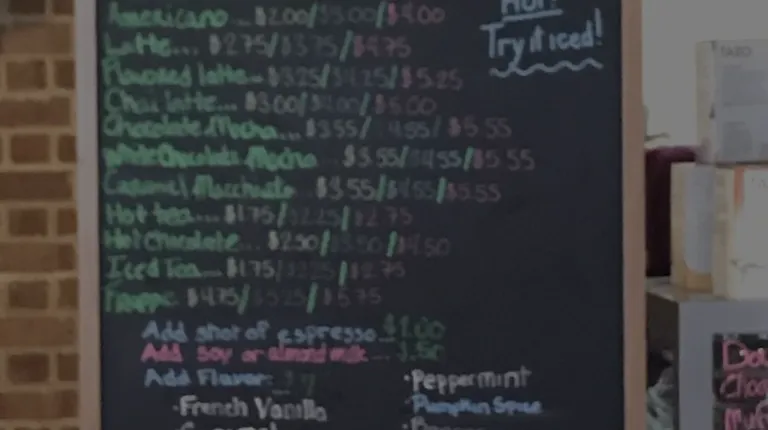 Americano... $2.00/$3.00/$4.00
Hot?
Latte... $2.75/$3.75/$4.75
Try it iced!
Flavored latte... $3.25/$4.25/$5.25
Chai latte... $3.00/$4.00/$5.00
Chocolate Mocha... $3.55/4.55/$5.55
White Chocolate Mocha $3.55/$4.55/$5.55
Caramel Macchiato $3.55/$4.55/$5.55
Hot tea... $1.75/$2.25/$2.75
Hot Chocolate... $2.50/$3.50/$4.50
Iced Tea... $1.75/$2.25/$2.75
Frappe $4.75/$5.25/$5.75
Add shot of espresso... $1.00
Add soy or almond milk...
Add Flavor:
·Peppermint
·French Vanilla
·Pumpkin Spice
Caramel
TARO